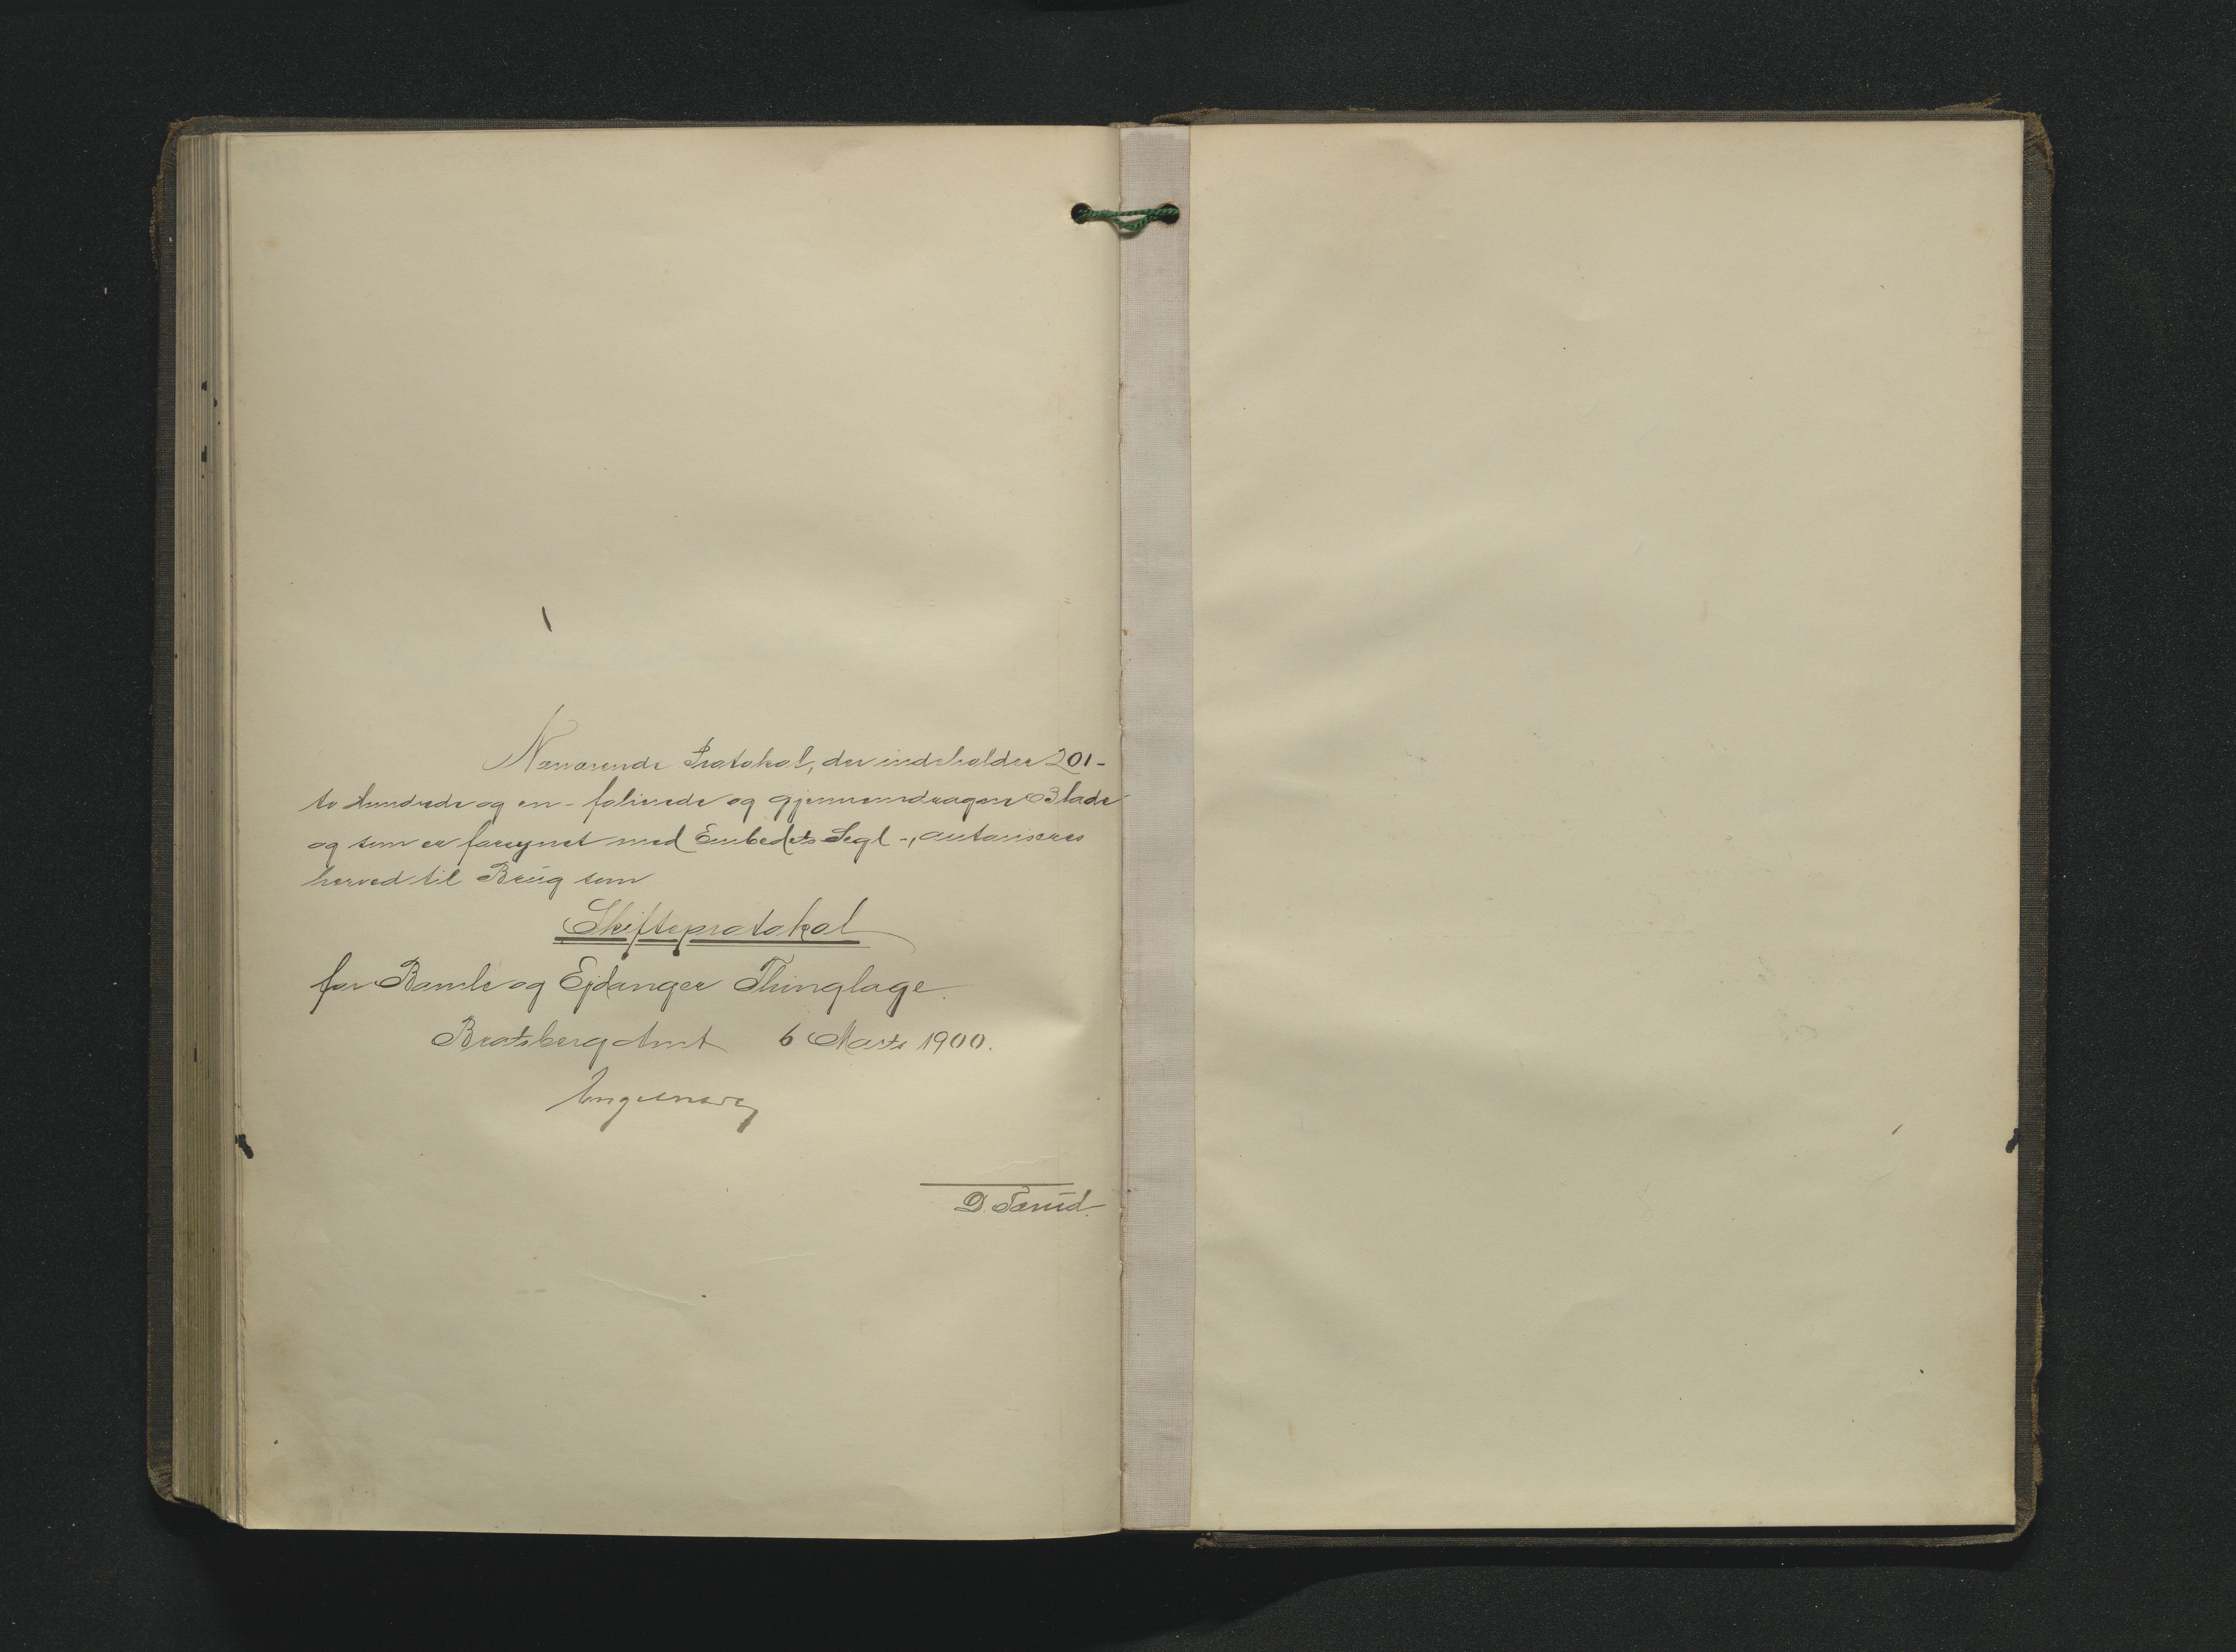 Nærværende Protokol, der indeholder 201-
to hundrede og en - folierede og gjennemdragne Blade
og som er forsynet med Embedets Segl -, autoriseres
herved til Brug som
Skifteprotokol
for Bamle og Ejdanger Thinglage.
Bratsberg Amt 6 Marts 1900.
D.